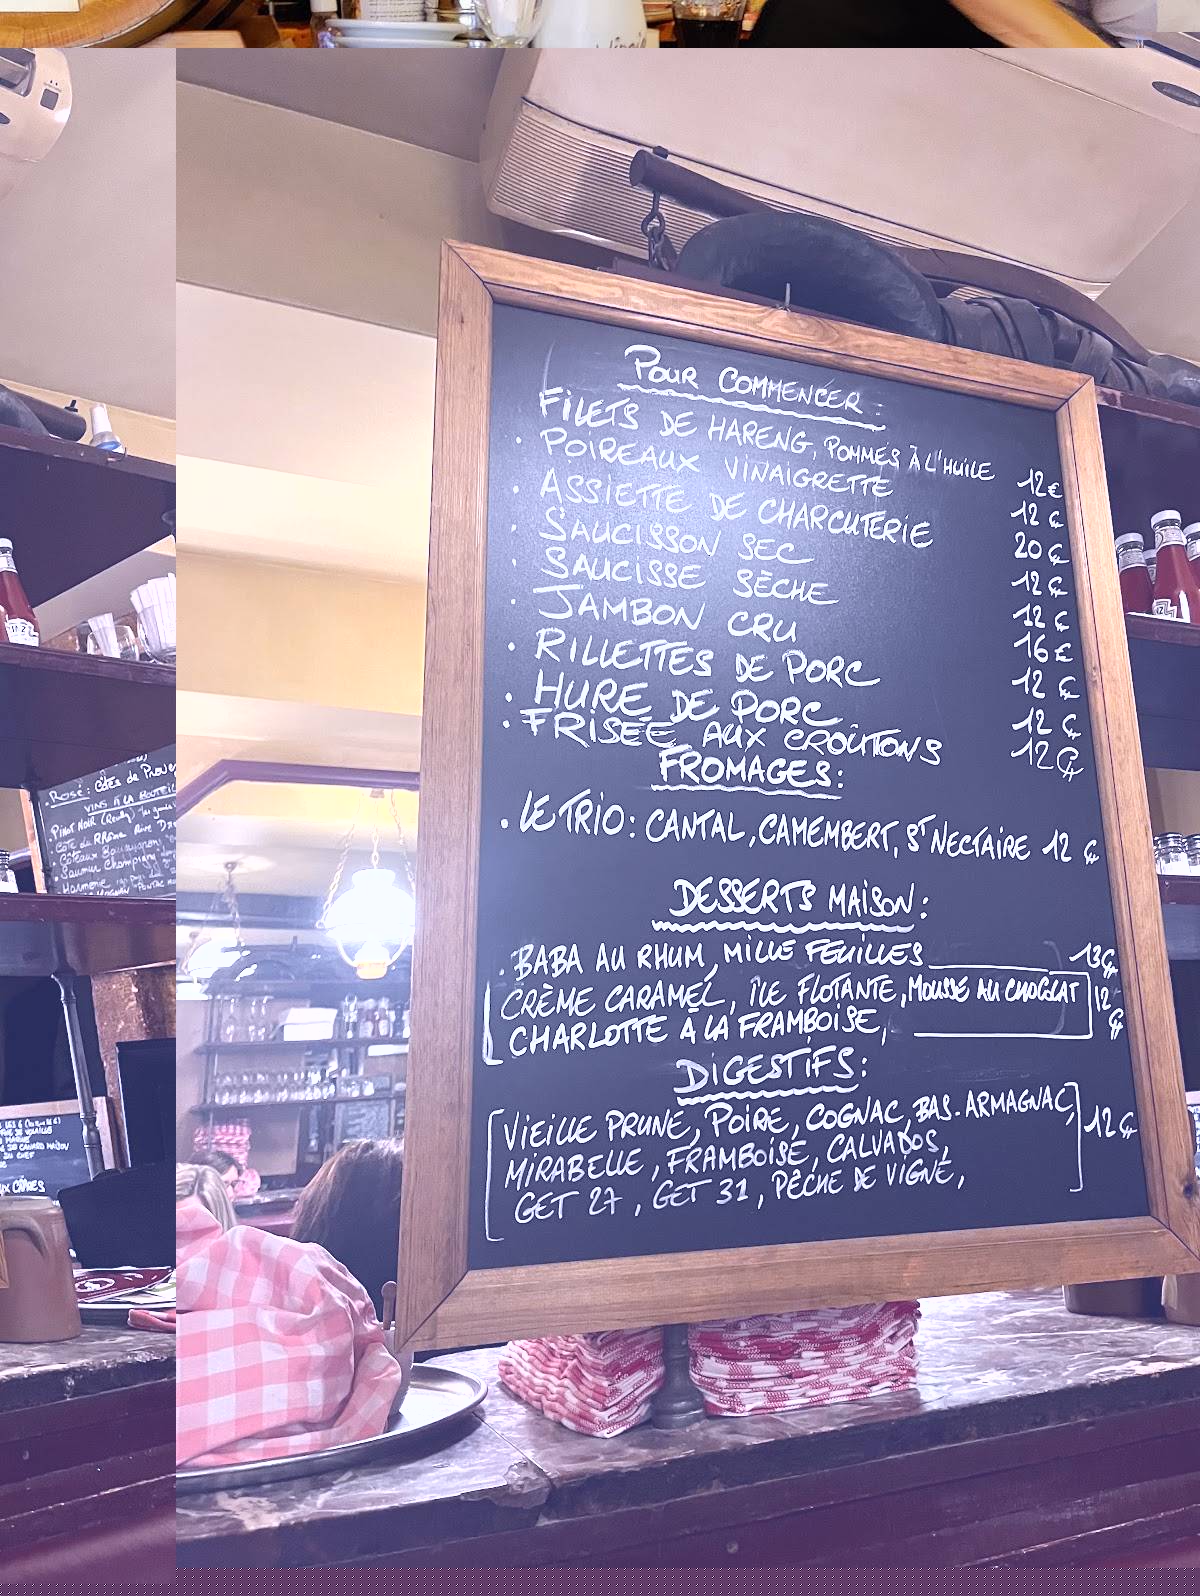 POUR COMMENCER:
FILETS DE HARENG, POMMES À L'HUILE 12€
. POIREAUX VINAIGRETTE 12€
. ASSIETTE DE CHARCUTERIE 20€
. SAUCISSON SEC 12€
. SAUCISSE SÈCHE 12€
. JAMBON CRU 16€
. RILLETTES DE PORC 12€
. HURE DE PORC 12€
. FRISÉE AUX CROÛTONS 12€
FROMAGES:
. LE TRIO: CANTAL, CAMEMBERT, ST NECTAIRE 12€
DESSERTS MAISON:
. BABA AU RHUM, MILLE FEUILLES 13€
CRÈME CARAMEL, ÎLE FLOTANTE, MOUSSE AU CHOCOLAT 12€
CHARLOTTE À LA FRAMBOISE,
DIGESTIFS:
VIEILLE PRUNE, POIRE, COGNAC, BAS-ARMAGNAC, 12€
MIRABELLE, FRAMBOISE, CALVADOS,
GET 27, GET 31, PÊCHE DE VIGNE,
. ROSÉ: CÔTES de PROVE
VINS À LA BOUTEIL
. PINOT NOIR (Reuilly)
. Côte du Rhône
. Coteaux
. Saumur Champigny
. Harmonie
CANARD MAISON
DU CHEF